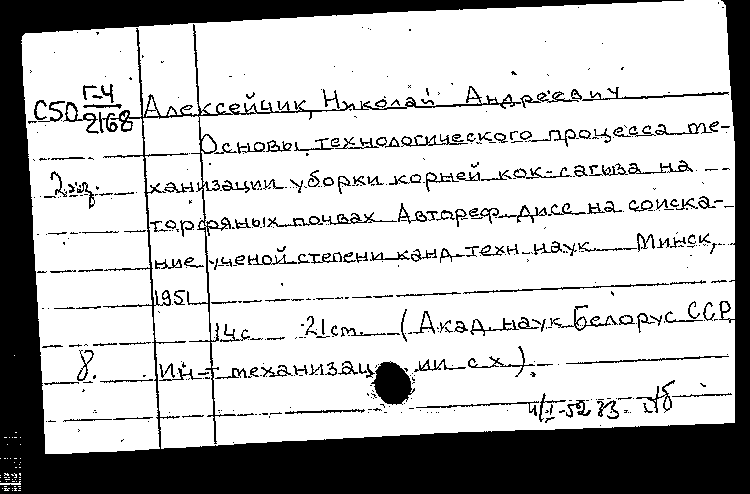 С50 Г-4/2168 Алексейчик, Николай Андреевич
Основы технологического процесса ме-
2 экз. ханизации уборки корней кок-сагыза на
торфяных почвах. Автореф. дисс. на соиска-
ние ученой степени канд. техн. наук. Минск,
1951
14 с 21 ст. (Акад. наук Белорус ССР.
8. Ин-т механизации с.х.).
4/I-52